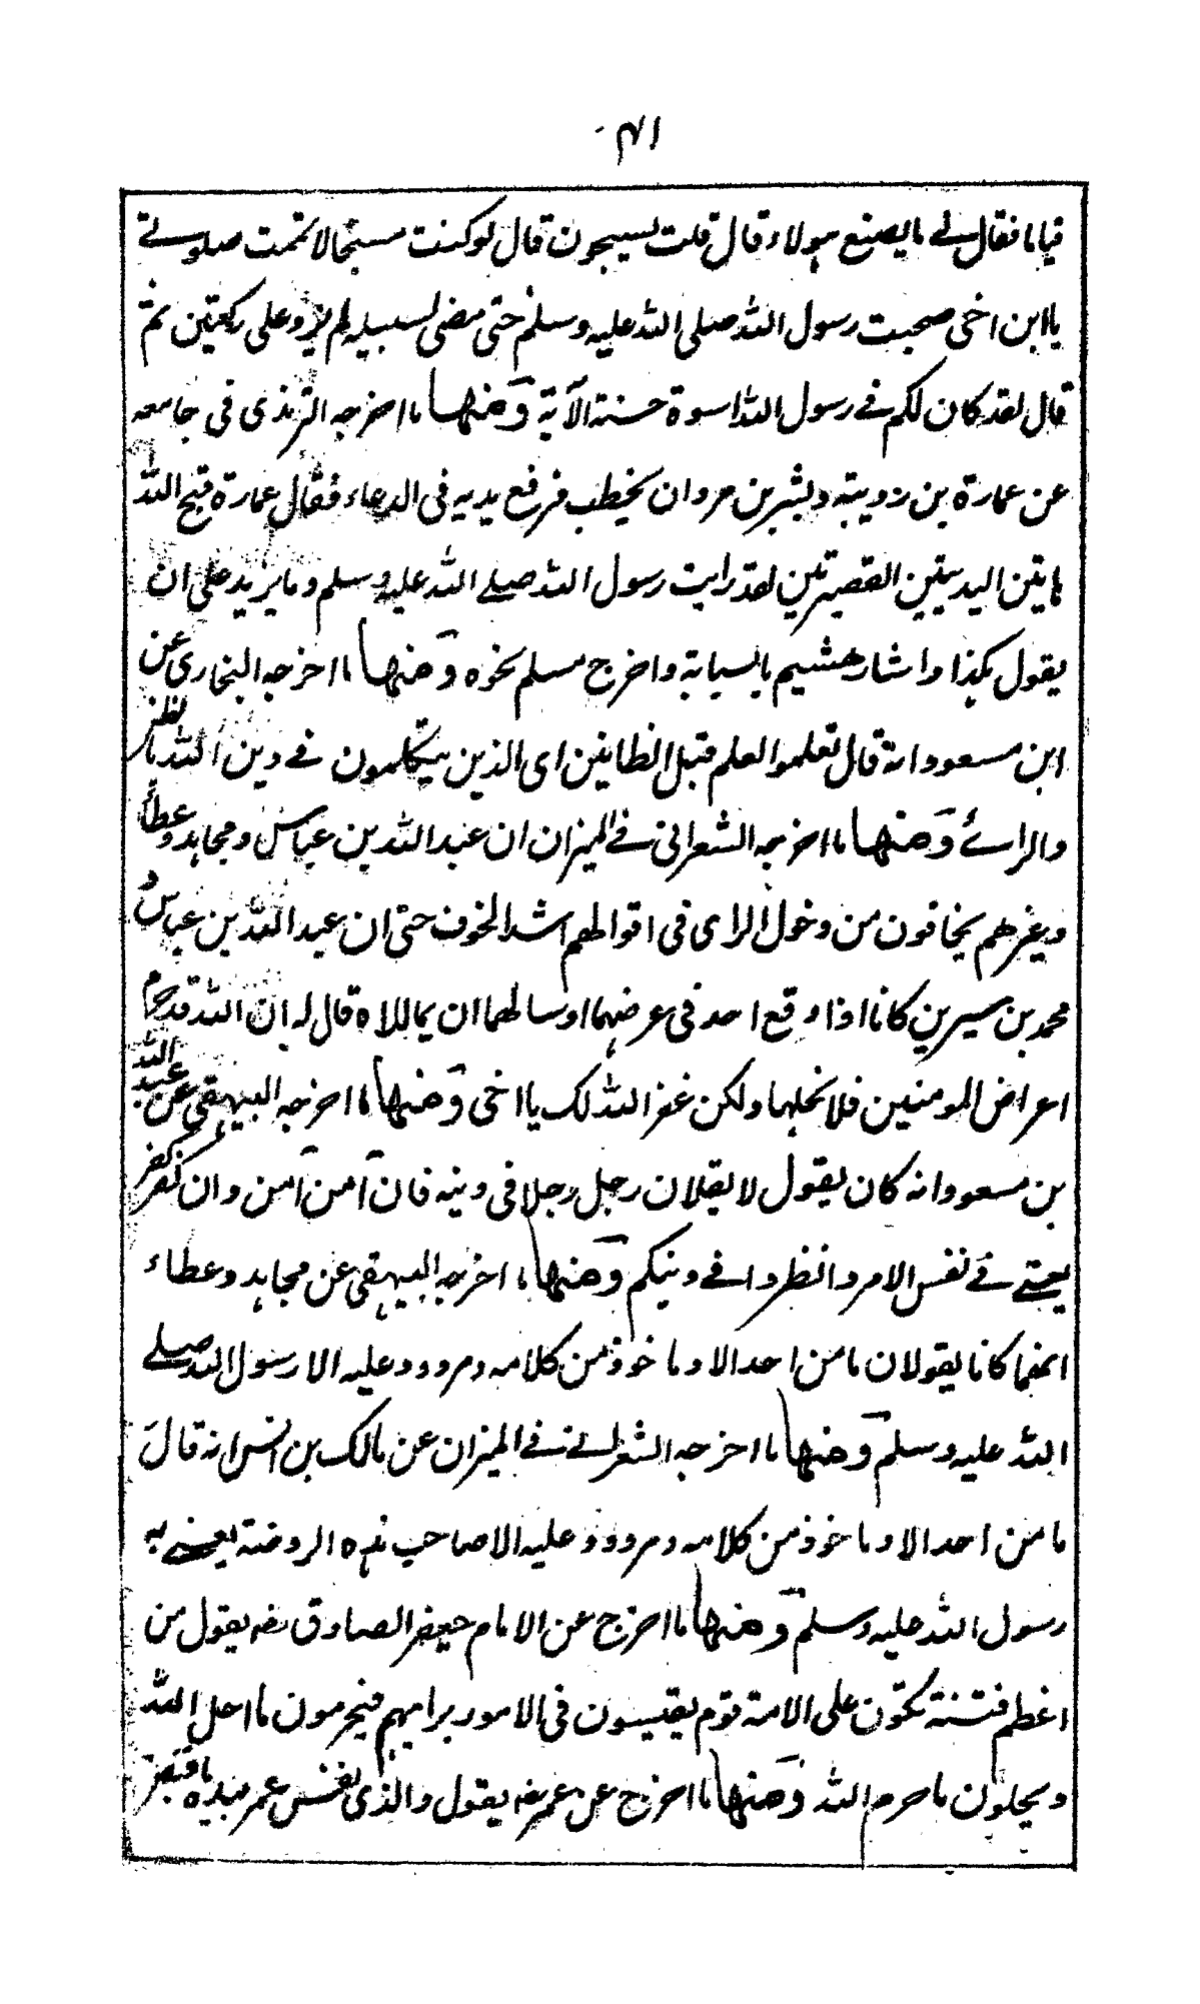 ٣١٠
قياما فقال لے ما يصنع هولاء قال قلت يسبحون قال لو كنت مسبحا لاتممت صلوتے
يا ابن اخى صحبت رسول الله صلى الله عليه وسلم حتى مضى لسبيله لم يزد على ركعتين ثم
قال لقد كان لكم فے رسول الله اسوة حسنة الآية ومنها ما اخرجه الترمذى فى جامعه
عن عمارة بن رويبة وبشر بن مروان يخطب فرفع يديه فى الدعاء فقال عمارة قبح الله
هاتين اليديتين القصيرتين لقد رايت رسول الله صلے الله عليه وسلم وما يزيد على ان
يقول هكذا واشار هشيم بالسبابة واخرج مسلم نحوه ومنها ما اخرجه البخارى عن
ابن مسعود انه قال تعلموا العلم قبل الظانين اى الذين يتكلمون فے دين الله بالظن
والرائے ومنها ما اخرجه الشعرانى فے الميزان ان عبد الله بن عباس ومجاهد وعطأ
وغيرهم يخافون من دخول الراى فى اقوالهم اشد الخوف حتى ان عبد الله بن عباس و
محمد بن سيرين كانا اذا وقع احد فى عرضهما وسالهما ان يحاللاه قال له ان الله قد حرم
اعراض المومنين فلا نحلها ولكن غفر الله لك يا اخى ومنها ما اخرجه البيهقى عن عبد الله
بن مسعود انه كان يقول لا يقلدن رجل رجلا فى دينه فان آمن آمن وان كفر كفر
يعنے فے نفس الامر وانظروا فے دينكم ومنها ما اخرجه البيهقى عن مجاهد وعطاء
انهما كانا يقولان ما من احد الا وماخوذ من كلامه ومردود عليه الا رسول الله صلے
الله عليه وسلم ومنها ما اخرجه الشعرانے فے الميزان عن مالك بن انس انه قال
ما من احد الا وماخوذ من كلامه ومردود عليه الا صاحب هذه الروضة يعنے به
رسول الله عليه وسلم ومنها ما اخرج عن الامام جعفر الصادق رضه يقول من
اعظم فتنة تكون على الامة قوم يقيسون فى الامور برايهم فيحرمون ما احل الله
ويحلون ما حرم الله ومنها ما اخرج عن عمر رضه يقول والذى نفس عمر بيده ما قبض